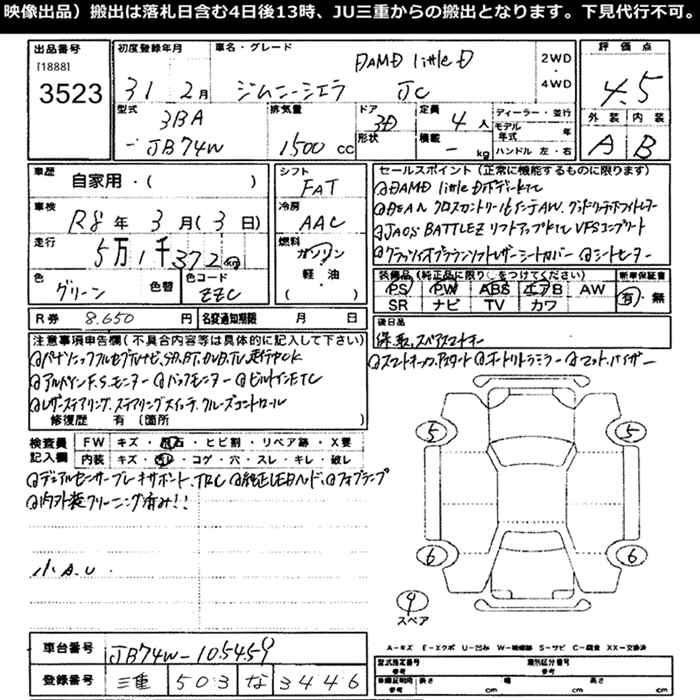 映像出品）搬出は落札日含む4日後13時、JU三重からの搬出となります。下見代行不可。
出品番号 初度登録年月 車名・グレード 評価点
[1888]
3523
31年 2月 ジムニーシエラ DAMD little D JC 2WD・4WD 4.5
型式 排気量 ドア 定員 ディーラー・並行 外装 内装
3BA 3D 4人 モデル年式 年
-JB74W 1500cc 形状 積載 - kg ハンドル 左・右 A B
車歴 自家用・( ) シフト FAT
車検 R8年 3月(3日) 冷房 AAC
走行 5万1千372km 燃料 ガソリン・軽・油 ( )
色 グリーン 色替 色コード ZZC
R券 8,650円 名変通知期限 月 日
セールスポイント(正常に機能するものに限ります)
DAMD little DボディーKTC
JAOS BATTLEZ リフトアップKTC VFSコンプリート
シートヒーター
装備品(純正品に限り○をつけてください) 新車保証書
PS PW ABS エアB AW 有・無
SR ナビ TV カワ
後日品
保、取、スペアスマートキー
スマートキー オートリトラミラー マット、バイザー
注意事項申告欄(不具合内容等は具体的に記入して下さい)
パナソニックフルセグナビ、SD、BT、DVD、TV、走行中OK
アルパインF.S.モニター バックモニター ビルトインETC
レザーステアリング、ステアリングスイッチ、クルーズコントロール
修復歴 有 (箇所 )
検査員記入欄
FW キズ・飛石・ヒビ割・リペア跡・X要
内装 キズ・汚れ・コゲ・穴・スレ・キレ・破レ
デュアルセンサーブレーキサポート、TRC 純正LEDヘッド、フォグランプ
内外装クリーニング済み!!
小A.U
5 5
6 6
9
スペア
A-キズ E-エクボ U-凹み W-補修跡 S-サビ C-腐食 XX-交換済
車台番号 JB74W-105459
登録番号 三重 503 な 3446
型式指定番号 参考 類別区分番号 参考
参考 長さ cm 幅 cm 高さ cm